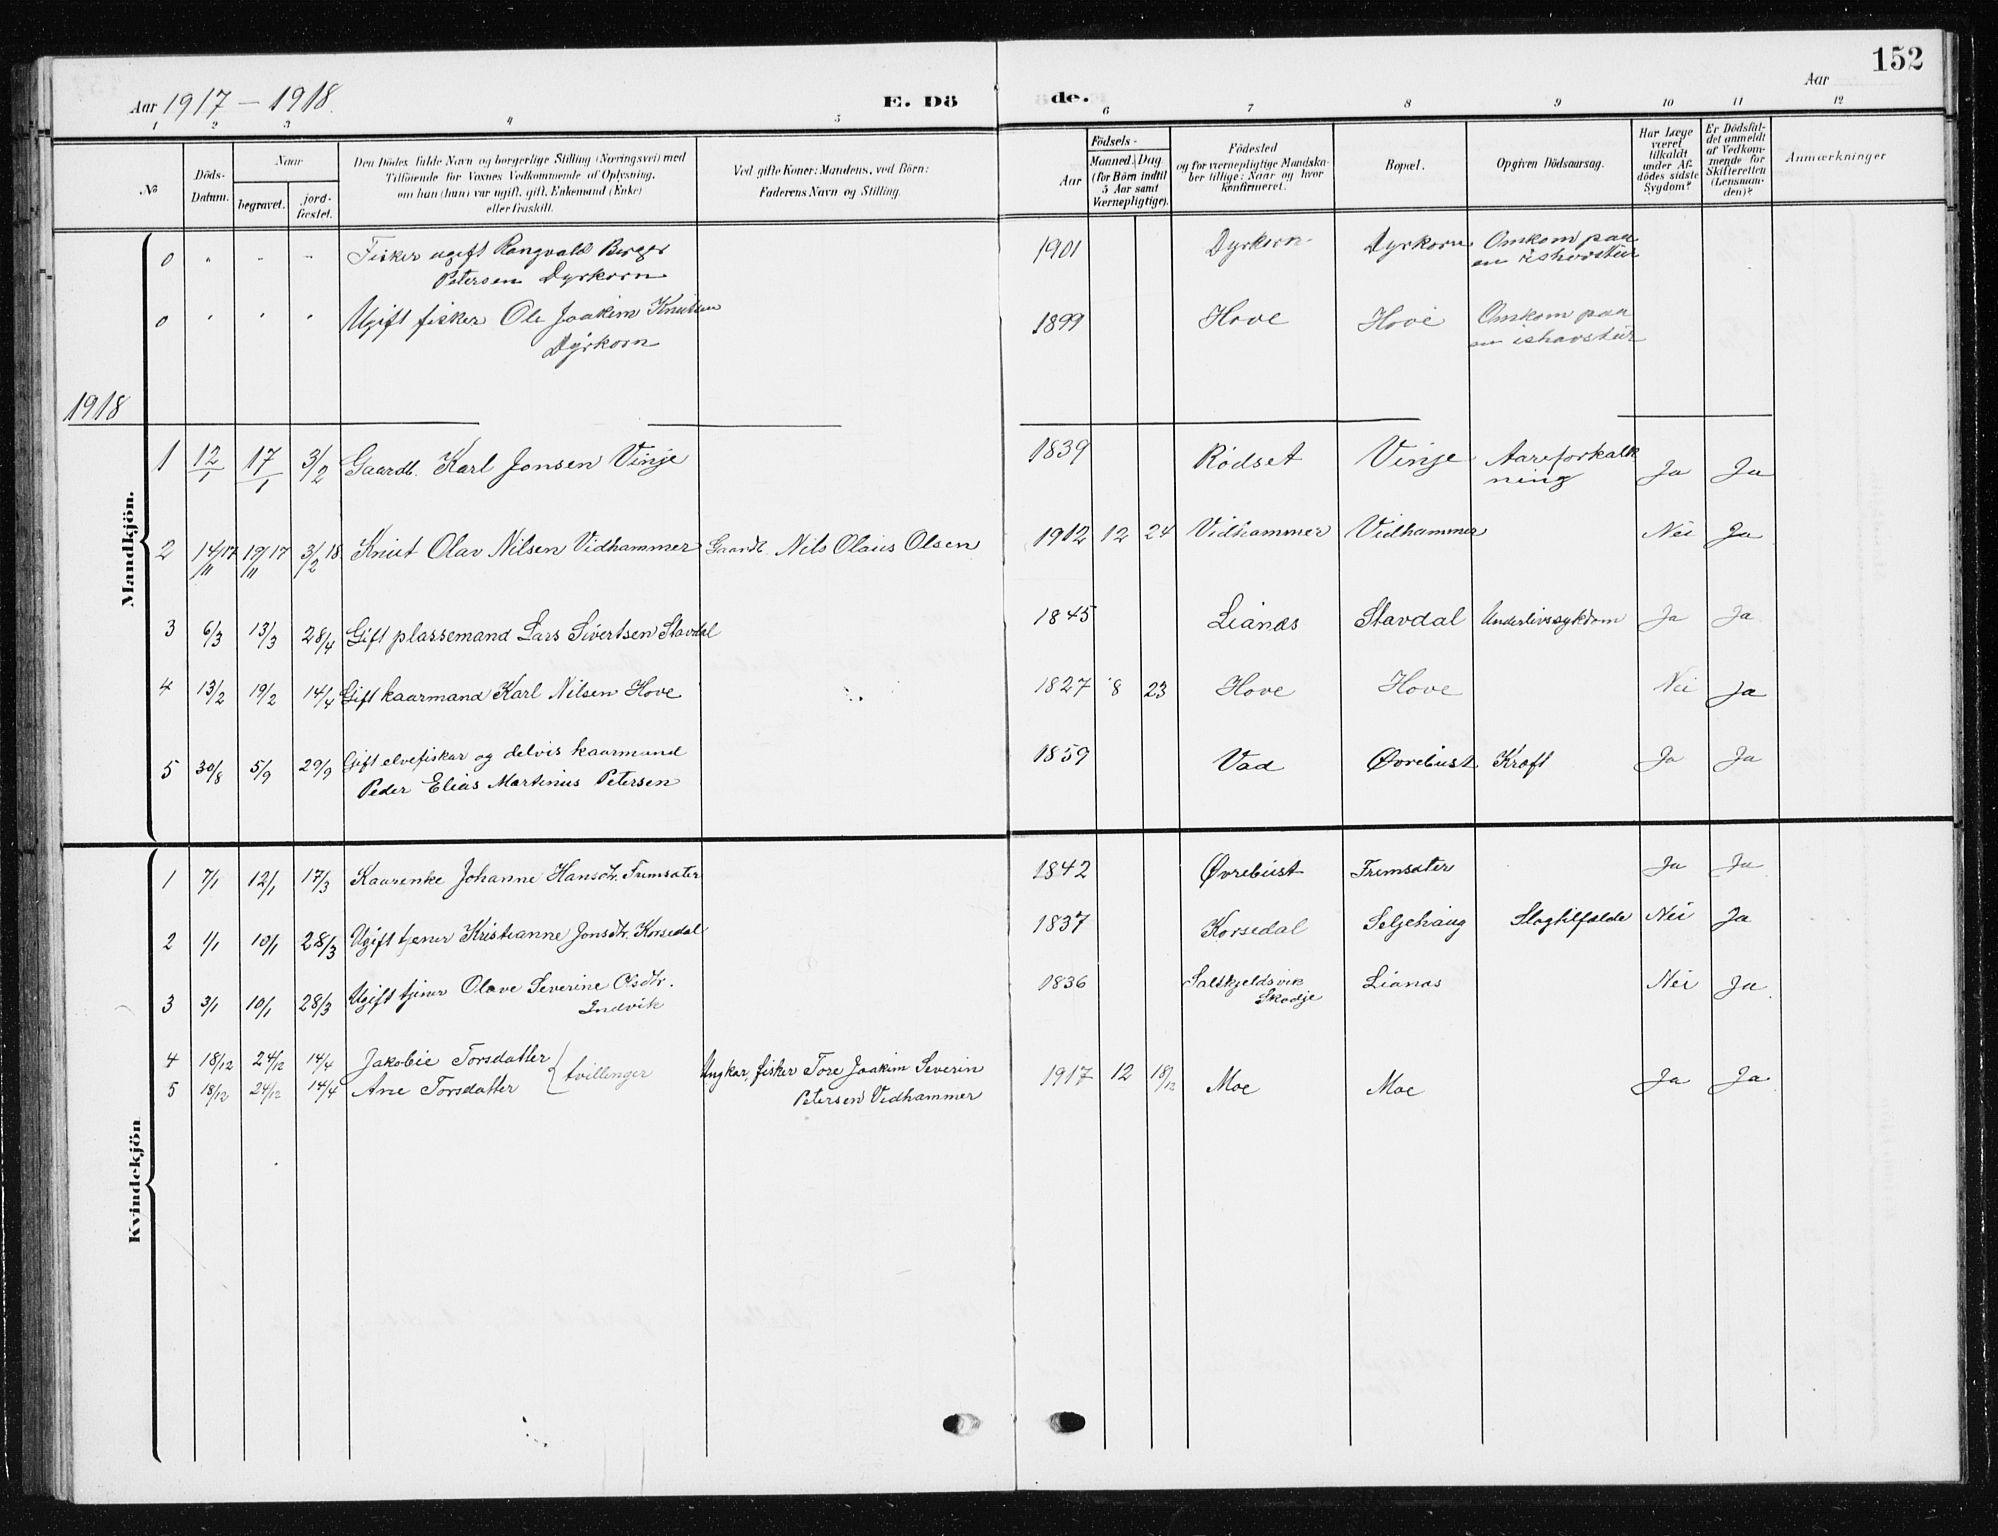 152
Aar 1917 - 1918. E. Dö de. Aar
1 2 3 4 5 6 7 8 9 10 11 12
No
Döds-
Datum.
Naar
begravet.
jord-
fæstet.
Den Dödes fulde Navn og borgerlige Stilling (Næringsvei) med
Tilföiende for Voxnes Vedkommende af Oplysning,
om han (hun) var ugift, gift, Enkemand (Enke)
eller fraskilt.
Ved gifte Koner: Mandens, ved Börn:
Faderens Navn og Stilling.
Födsels-
Aar
Maaned. Dag
(for Börn indtil
5 Aar samt
Værnepligtige).
Födested
og for værnepligtige Mandska-
ber tillige: Naar og hvor
konfirmeret.
Bopæl.
Opgiven Dödsaarsag.
Har Læge
været
tilkaldt
under Af-
dödes sidste
Sygdom?
Er Dödsfal-
det anmeldt
af Vedkom-
mende for
Skifteretten
(Lensman-
den)?
Anmærkninger
Mandkjön.
0 " " " Fisker ugift Rangvald Berger 1901 Dyrkorn Dyrkorn Omkom paa
Petersen Dyrkorn en ishavstur
0 " " " Ugift fisker Ole Joakim Knutsen 1899 Hove Hove Omkom paa
Dyrkorn en ishavstur
1918
1 12/1 17/1 3/2 Gaardb. Karl Jonsen Vinje 1839 Rødset Vinje Aareforkalk Ja Ja
ning
2 14/11 17 19/11 17 3/2 18 Knut Olav Nilsen Vidhammer Gaardb. Nils Olaus Olsen 1912 12 24 Vidhammer Vidhammer Nei Ja
3 6/3 13/3 28/4 Gift plassemand Lars Sivertsen Stavdal 1845 Lianes Stavdal Underlivssykdom Ja Ja
4 13/2 19/2 14/4 Gift kaarmand Karl Nilsen Hove 1827 8 23 Hove Hove Nei Ja
5 30/8 5/9 29/9 Gift elvefisker og delvis kaarmand 1859 Vad Øvrebust Kræft Ja Ja
Peder Elias Martinus Petersen
Kvindekjön
1 7/1 12/1 17/3 Kaarenke Johanne Hansdtr. Fremsæter 1842 Øvrebust Fremsæter Ja Ja
2 1/1 10/1 28/3 Ugift tjener Kristianne Jonsdtr. Korsedal 1837 Korsedal Seljehaug Slagtilfælde Nei Ja
3 3/1 10/1 28/3 Ugift tjener Olave Severine Olsdtr. 1836 Saltkjeldsvik Lianes Nei Ja
Indvik Skodje
4 18/12 24/12 14/4 Jakobie Torsdatter tvillinger Ungkar, fisker Tore Joakim Severin 1917 12 18/12 Moe Moe Ja Ja
5 18/12 24/12 14/4 Ane Torsdatter Petersen Vidhammer